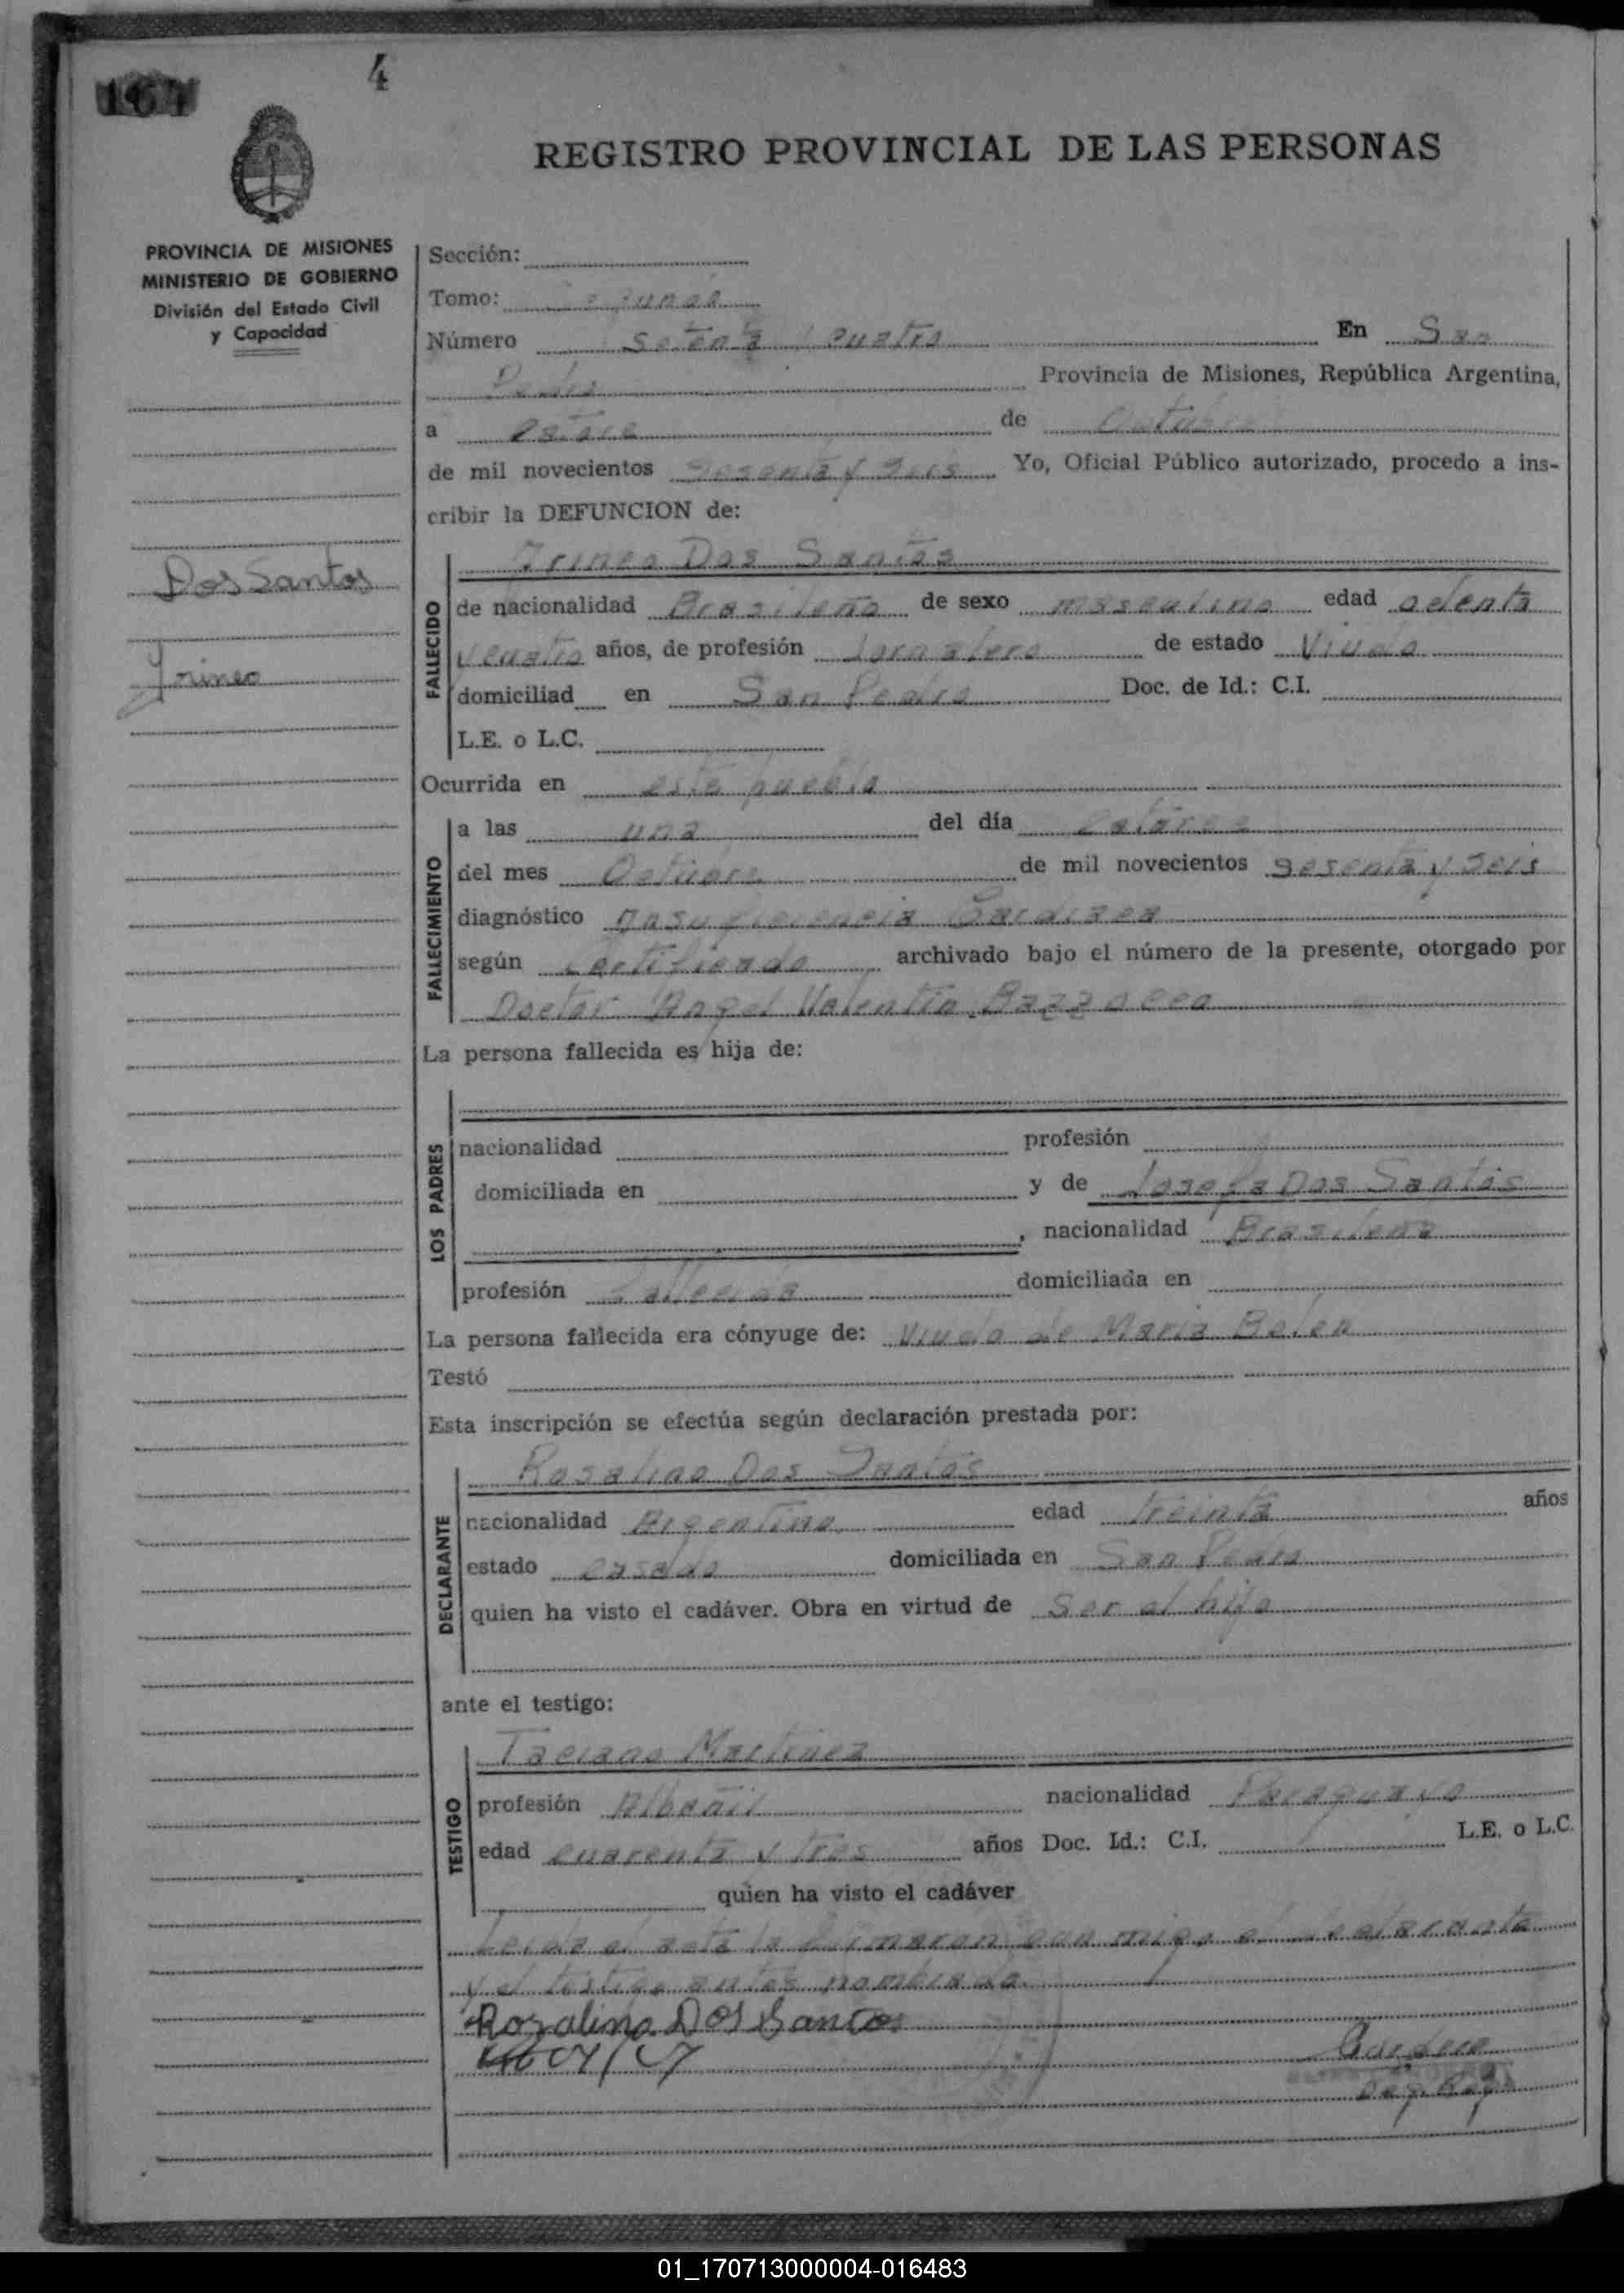 164
4
REGISTRO PROVINCIAL DE LAS PERSONAS
PROVINCIA DE MISIONES
MINISTERIO DE GOBIERNO
División del Estado Civil
y Capacidad
Dos Santos
Irineo
Sección:
Tomo: Segundo
Número Setenta y cuatro En San
Pedro Provincia de Misiones, República Argentina,
a catorce de Octubre
de mil novecientos sesenta y seis Yo, Oficial Público autorizado, procedo a ins-
cribir la DEFUNCION de:
Irineo Dos Santos
FALLECIDO
de nacionalidad Brasileño de sexo masculino edad ochenta
y cuatro años, de profesión Jornalero de estado Viudo
domiciliad en San Pedro Doc. de Id.: C.I.
L.E. o L.C.
Ocurrida en este pueblo
FALLECIMIENTO
a las una del día catorce
del mes Octubre de mil novecientos sesenta y seis
diagnóstico Insuficiencia Cardiaca
según Certificado archivado bajo el número de la presente, otorgado por
Doctor Angel Valentin
La persona fallecida es hija de:
LOS PADRES
nacionalidad profesión
domiciliada en y de Josefa Dos Santos
, nacionalidad Brasileña
profesión Fallecida domiciliada en
La persona fallecida era cónyuge de: Viudo de Maria Belen
Testó
Esta inscripción se efectúa según declaración prestada por:
Rosalino Dos Santos
DECLARANTE
nacionalidad Argentino edad treinta años
estado casado domiciliada en San Pedro
quien ha visto el cadáver. Obra en virtud de ser el hijo
ante el testigo:
Taciano Martinez
TESTIGO
profesión Albañil nacionalidad Paraguayo
edad cuarenta y tres años Doc. Id.: C.I. L.E. o L.C.
quien ha visto el cadáver
Leida el acta la firmaron conmigo el declarante
y el testigo antes nombrado
Rozalino Dos Santos
01_170713000004-016483